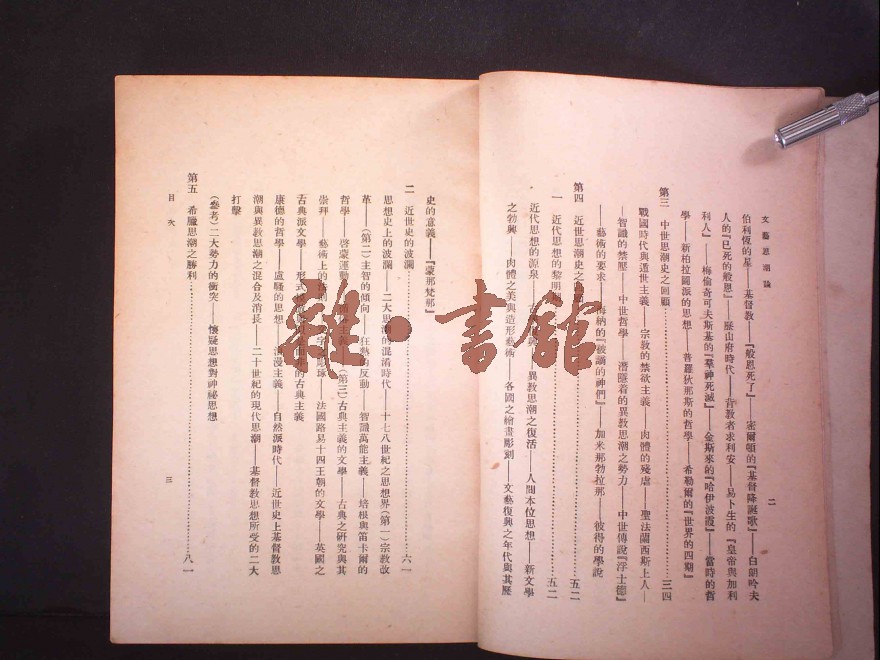 文藝思潮論
二
伯利恆的星——基督教——『般恩死了』——密爾頓的『基督降誕歌』——白朗吟夫
人的『已死的般恩』——歷山府時代——背教者求利安——易卜生的『皇帝與加利
利人』——梅倫奇可夫斯基的『羣神死滅』——金斯來的『哈伊波霞』——當時的哲
學——新柏拉圖派的思想——普羅狄那斯的哲學——希勒爾的『世界的四期』
第三 中世思潮史之回顧……三四
戰國時代與遁世主義——宗教的禁欲主義——肉體的殘虐——聖法蘭西斯上人——
智識的禁壓——中世哲學——潛隱着的異教思潮之勢力——中世傳說『浮士德』
——藝術的要求——海納的『被謫的神們』——加米那勃拉那——彼得的學說
第四 近世思潮史之……五二
一 近代思想的黎明期……五二
近代思想的源泉——異教思潮之復活——人間本位思想——新文學
之勃興——肉體之美與造形藝術——各國之繪畫彫刻——文藝復興之年代與其歷
史的意義——『蒙那梵那』
二 近世史的波瀾……六一
思想史上的波瀾——二大思潮的混淆時代——十七八世紀之思想界(第一)宗教改
革——(第二)主智的傾向——狂熱的反動——智識萬能主義——培根與笛卡爾的
哲學——啓蒙運動——主義——(第三)古典主義的文學——古典之研究與其
崇拜——藝術上的法則——法國路易十四王朝的文學——英國之
古典派文學——形式的古典主義
康德的哲學——盧騷的思想——浪漫主義——自然派時代——近世史上基督教思
潮與異教思潮之混合及消長——二十世紀的現代思潮——基督教思想所受的二大
打擊
(參考)二大勢力的衝突——懷疑思想對神祕思想
第五 希臘思潮之勝利……八一
目次
三
雜·書館